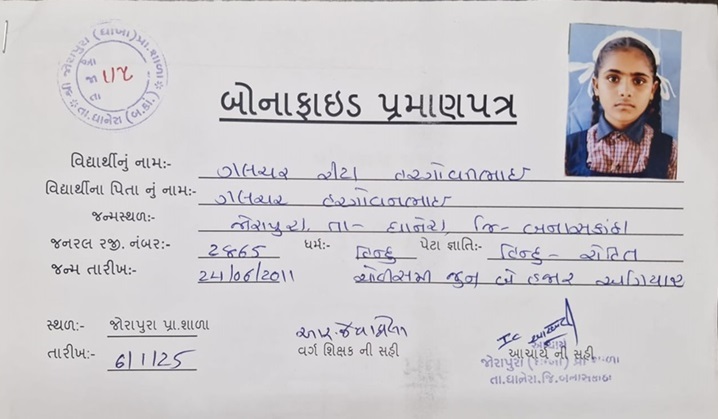 શ્રી જોરાપુરા (ધાખા) પ્રા.શાળા
તા.ધાનેરા (બ.કાં.)
આ
જા ૫/૨
તા
બોનાફાઇડ પ્રમાણપત્ર
વિદ્યાર્થીનું નામ:- ગલચર રીટા હરગોવનભાઇ
વિદ્યાર્થીના પિતા નું નામ:- ગલચર હરગોવનભાઇ
જન્મસ્થળ:- જોરાપુરા, તા- ધાનેરા, જિ- બનાસકાંઠા
જનરલ રજી. નંબર:- ૨૪૬૫ ધર્મ:- હિન્દુ પેટા જ્ઞાતિ:- હિન્દુ - રોહિત
જન્મ તારીખ:- 24/06/2011 ચોવીસમી જુન બે હજાર અગિયાર
સ્થળ:- જોરાપુરા પ્રા.શાળા
તારીખ:- 6/1/25
વર્ગ શિક્ષક ની સહી
આચાર્ય ની સહી
આચાર્ય
જોરાપુરા (ધાખા) પ્રા શાળા
તા.ધાનેરા.જિ.બનાસકાંઠા